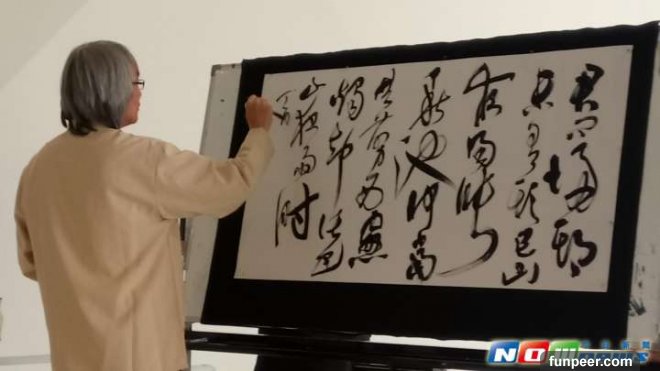 君問歸期
未有期巴山
夜雨漲
秋池何當
共剪西窗
燭卻話巴
山夜雨時
NOWnews
funpeer.com